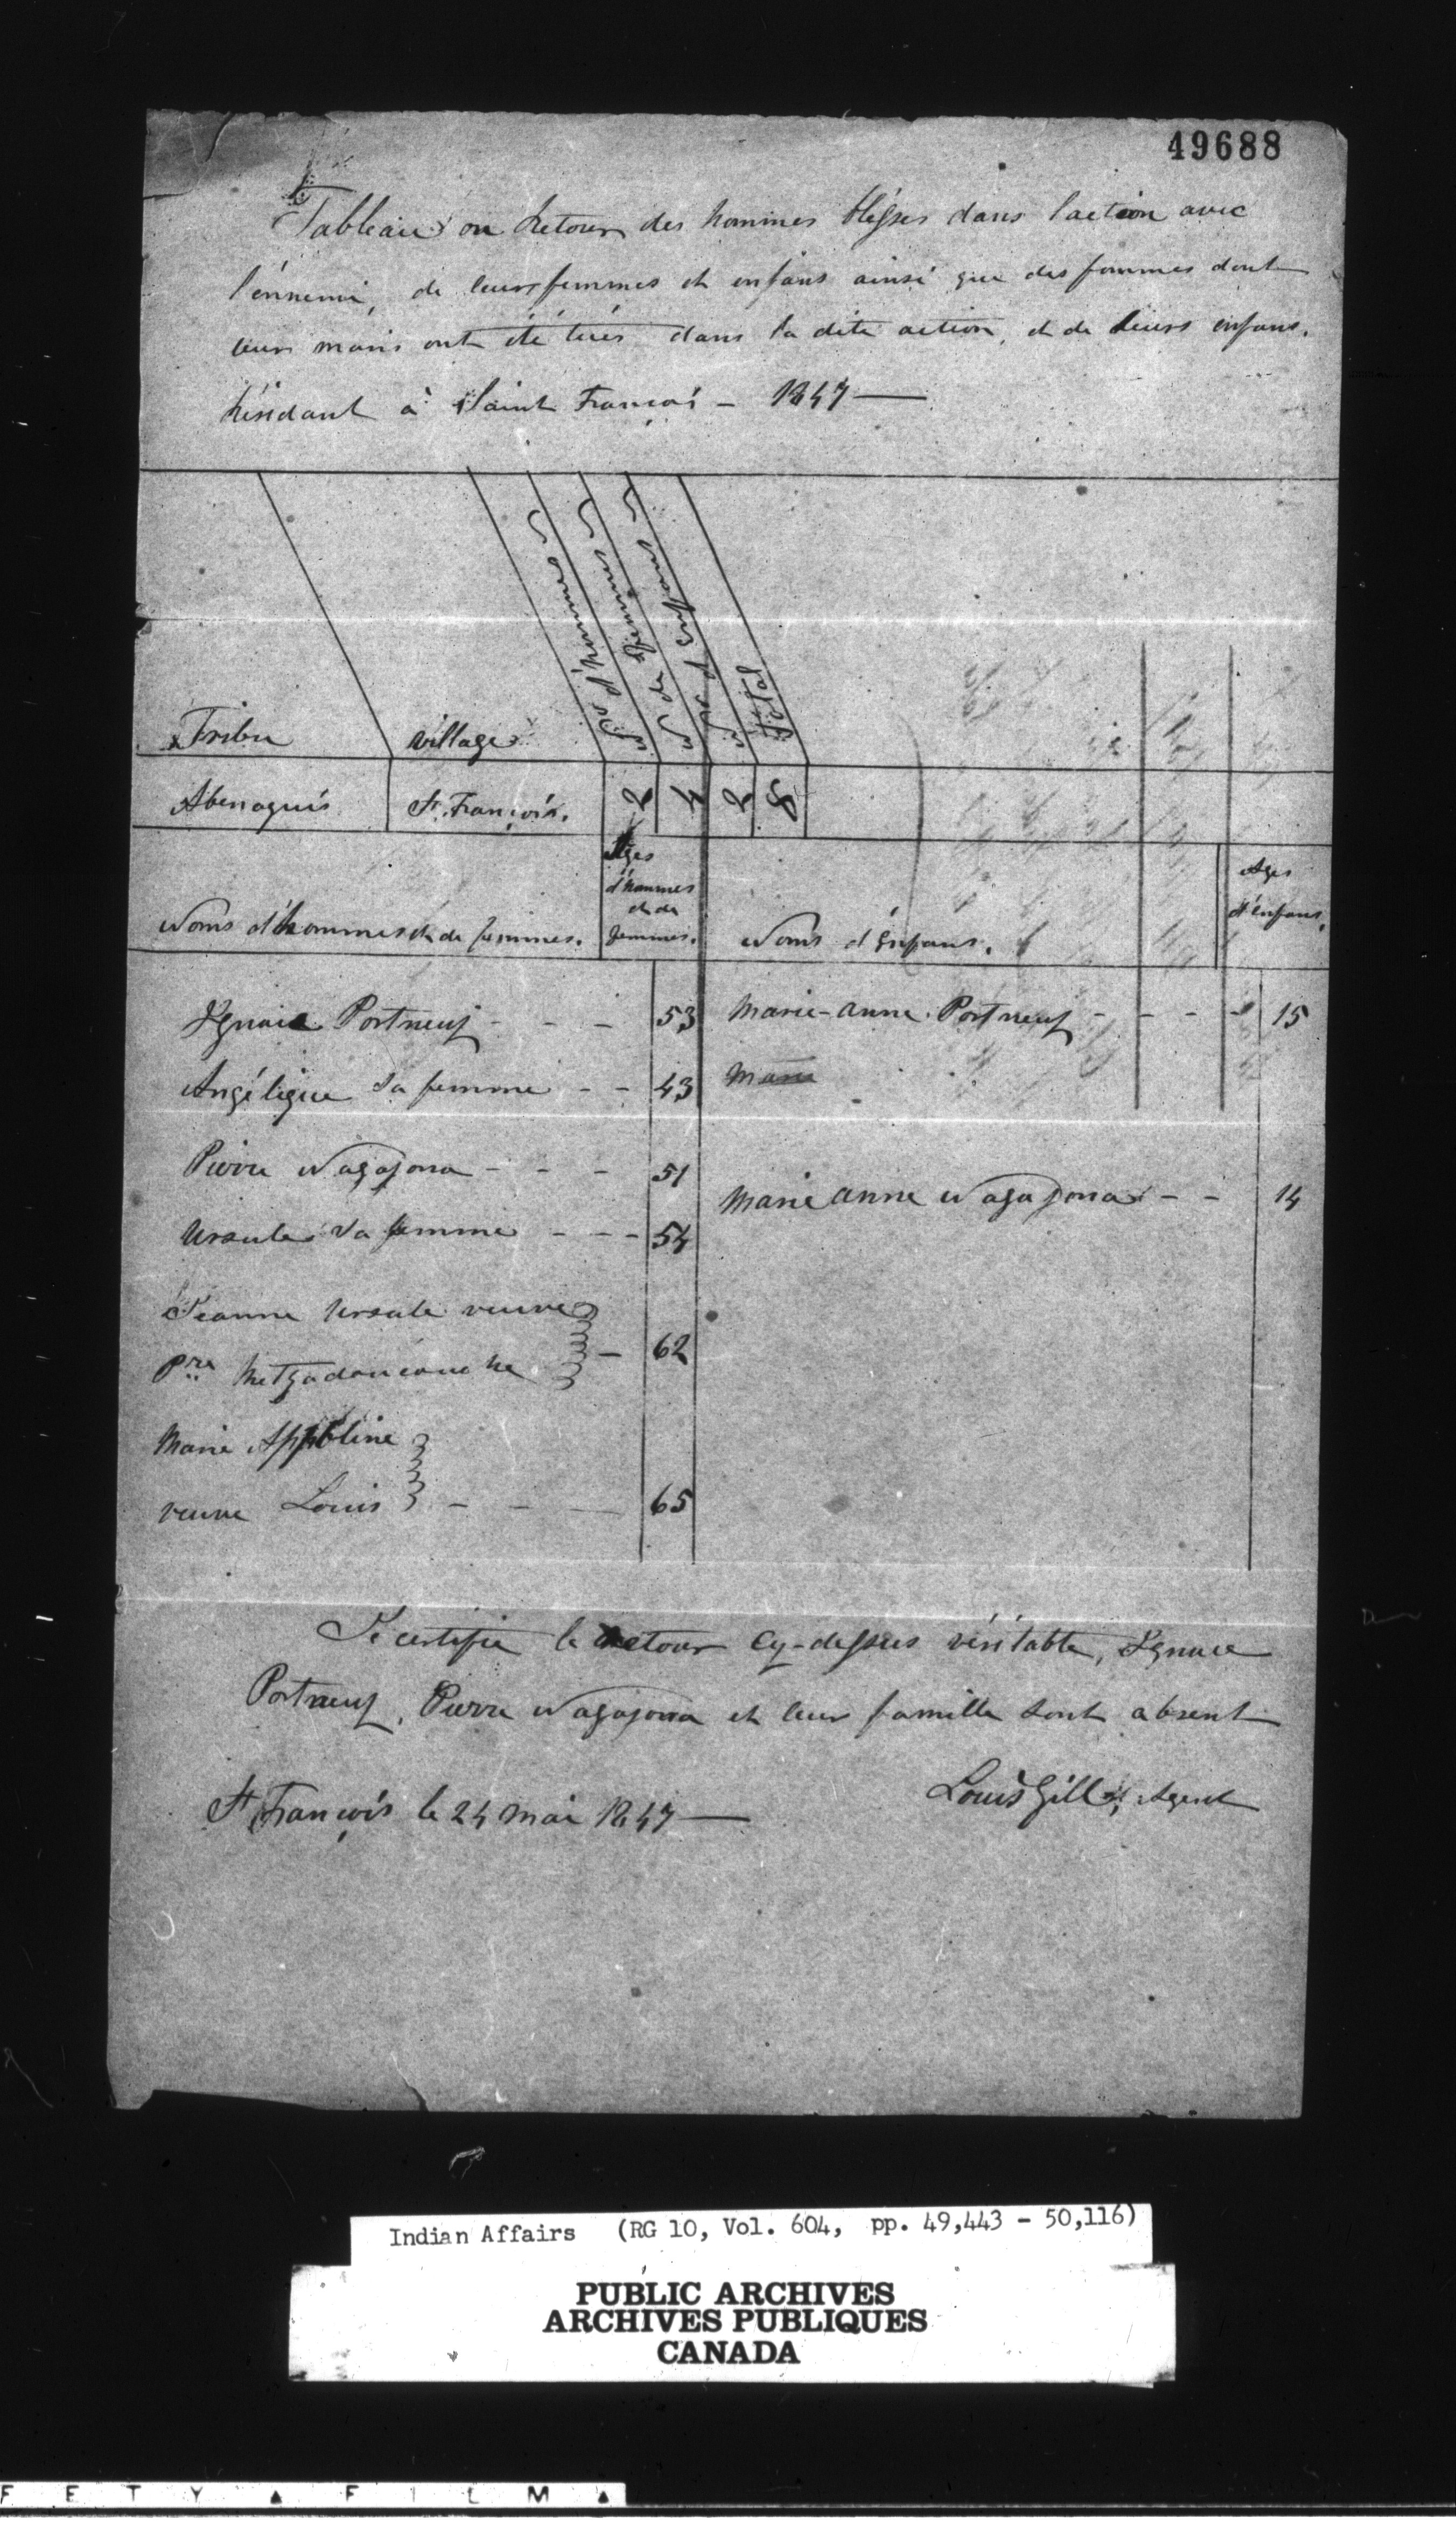 49688
Tableau ou Retour des hommes blessés dans l'action avec
l'énnemi, de leurs femmes et enfans ainsi que des femmes dont
leurs maris ont été tués dans la dite action, et de leurs enfans.
Résidant à Saint François - 1847
Tribu village Nre d'hommes Nre de femmes Nre d'enfans Total
Abenaquis St. François. 2 4 2 8
Noms d'hommes et de femmes. Ages d'hommes et de femmes. Noms d'Enfans. Ages d'enfans.
Ignace Portneuf - - - 53 Marie-anne Portneuf - - - - 15
Angélique sa femme - - 43 Marie
Pierre Wagajona - - - 51
Marie anne Wagajona - - 14
Ursule sa femme - - - 54
Jeanne Ursule veuve
Pre - 62
Marie Appoline
veuve Louis - - - 65
Je certifie le Retour cy-dessus véritable, Ignace
Portneuf, Pierre Wagajona et leur famille sont absent
Louis Gill, Agent
St François le 24 mai 1847
Indian Affairs (RG 10, Vol. 604, pp. 49,443 - 50,116)
PUBLIC ARCHIVES
ARCHIVES PUBLIQUES
CANADA
F E T Y ▲ F I L M ▲